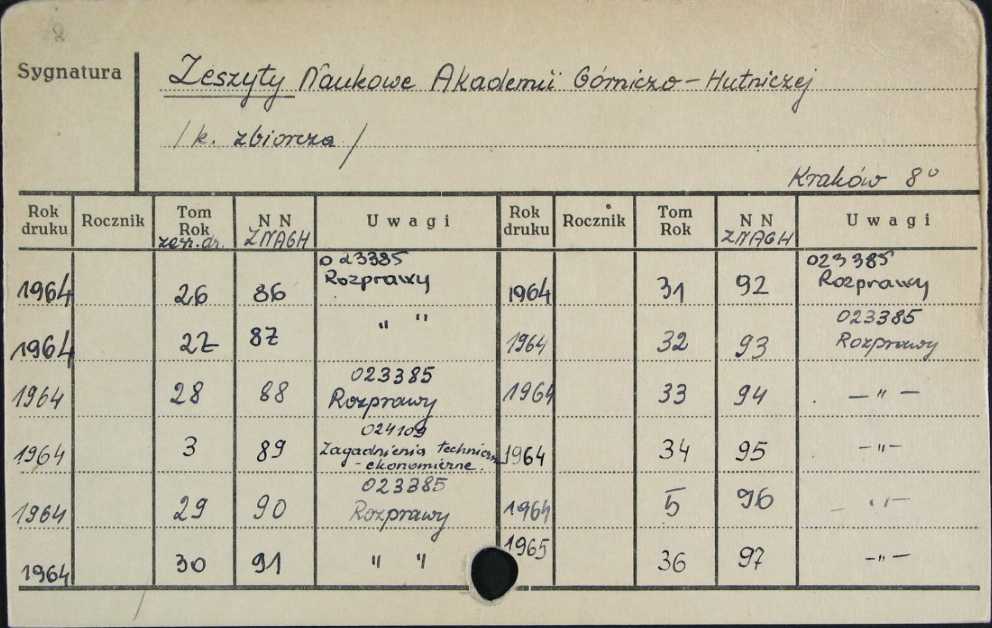 Sygnatura
Zeszyty Naukowe Akademii Górniczo-Hutniczej
/k. zbiorcza/
Kraków 8°
Rok druku Rocznik Tom Rok zesz. dr. N N ZNAGH Uwagi Rok druku Rocznik Tom Rok N N ZNAGH Uwagi
1964 26 86 023385 Rozprawy 1964 31 92 023385 Rozprawy
1964 27 87 " " 1964 32 93 023385 Rozprawy
1964 28 88 023385 Rozprawy 1964 33 94 —"—
1964 3 89 024109 Zagadnienia techniczn -ekonomiczne. 1964 34 95 —"—
1964 29 90 023385 Rozprawy 1964 5 96 —"—
1964 30 91 " " 1965 36 97 —"—